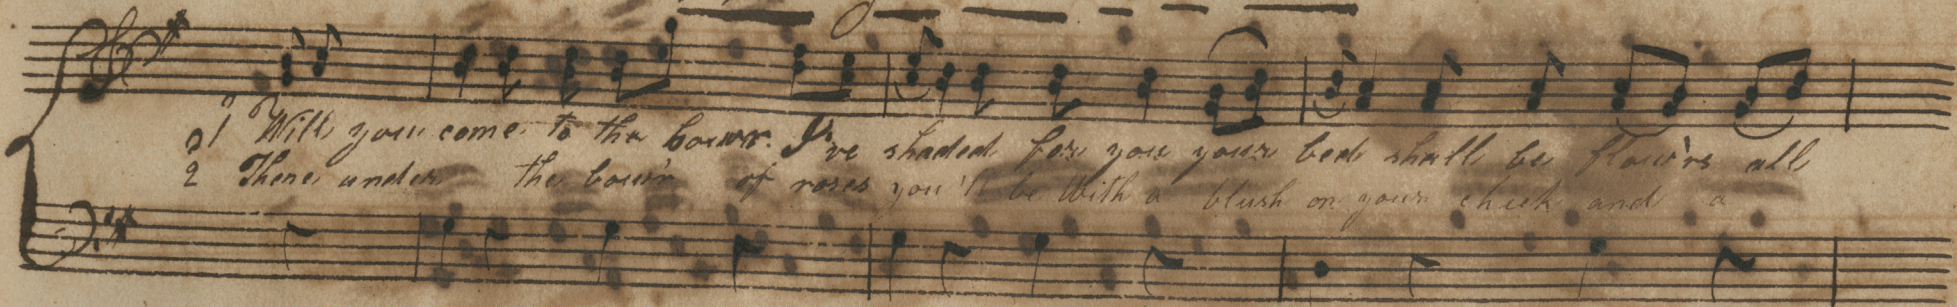 1 Will you come to the bower I've shaded for you your bed shall be flow'rs all
2 There under the bow'r of roses you'll be With a blush on your cheek and a